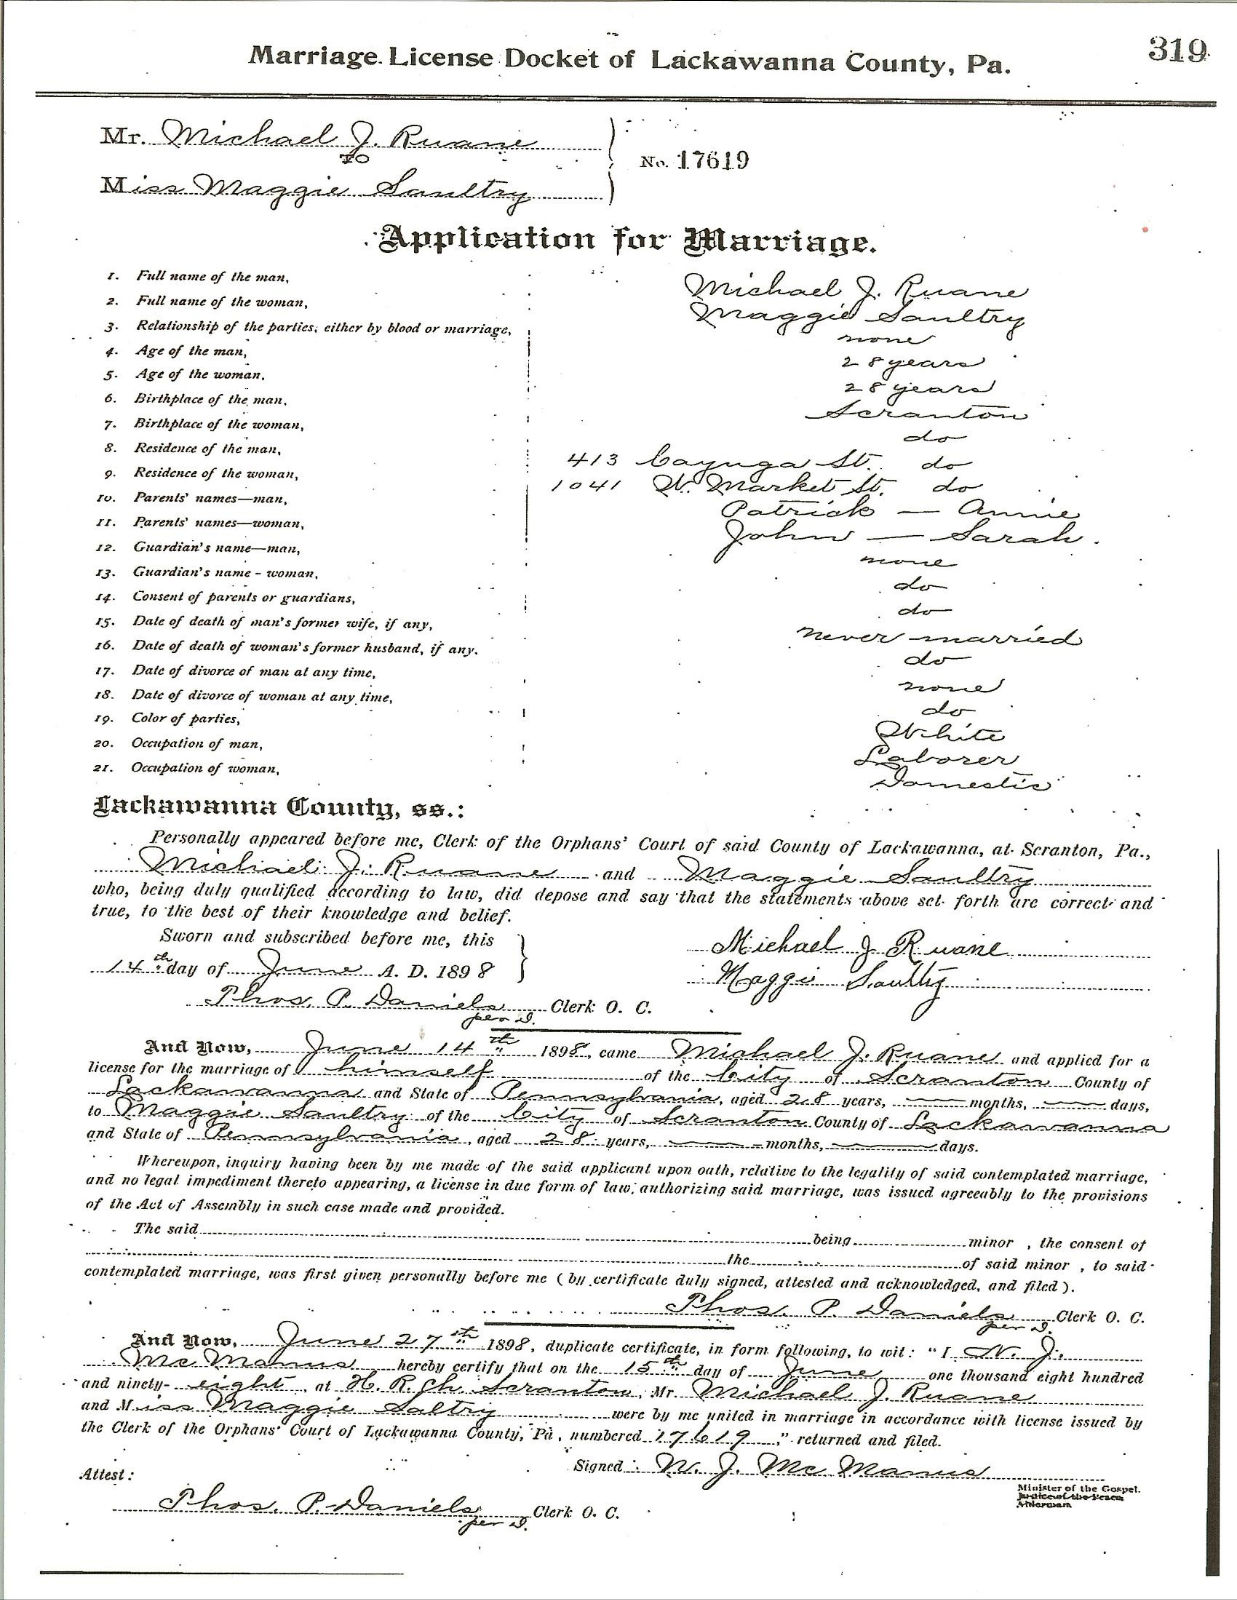 Marriage License Docket of Lackawanna County, Pa. 319
Mr. Michael J. Ruane
TO
No. 17619
Miss Maggie Saultry
Application for Marriage.
1. Full name of the man, Michael J. Ruane
2. Full name of the woman, Maggie Saultry
3. Relationship of the parties, either by blood or marriage, none
4. Age of the man, 28 years
5. Age of the woman, 28 years
6. Birthplace of the man, Scranton
7. Birthplace of the woman, do
8. Residence of the man, 413 Cayuga St. do
9. Residence of the woman, 1041 W. Market St. do
10. Parents' names—man, Patrick — Annie
11. Parents' names—woman, John — Sarah.
12. Guardian's name—man, none
13. Guardian's name - woman, do
14. Consent of parents or guardians, do
15. Date of death of man's former wife, if any, never married
16. Date of death of woman's former husband, if any. do
17. Date of divorce of man at any time, none
18. Date of divorce of woman at any time, do
19. Color of parties, White
20. Occupation of man, Laborer
21. Occupation of woman, Domestic
Lackawanna County, ss.:
Personally appeared before me, Clerk of the Orphans' Court of said County of Lackawanna, at Scranton, Pa.,
Michael J. Ruane and Maggie Saultry
who, being duly qualified according to law, did depose and say that the statements above set forth are correct and
true, to the best of their knowledge and belief.
Sworn and subscribed before me, this Michael J Ruane
14th day of June A. D. 1898 Maggie Saultry
Thos. P. Daniels Clerk O. C.
per D.
And Now, June 14th 1898, came Michael J. Ruane and applied for a
license for the marriage of himself of the City of Scranton County of
Lackawanna and State of Pennsylvania, aged 28 years, — months, — days,
to Maggie Saultry of the City of Scranton County of Lackawanna
and State of Pennsylvania, aged 28 years, — months, — days.
Whereupon, inquiry having been by me made of the said applicant upon oath, relative to the legality of said contemplated marriage,
and no legal impediment thereto appearing, a license in due form of law, authorizing said marriage, was issued agreeably to the provisions
of the Act of Assembly in such case made and provided.
The said being minor , the consent of
the of said minor , to said
contemplated marriage, was first given personally before me (by certificate duly signed, attested and acknowledged, and filed).
Thos. P. Daniels Clerk O. C.
per D.
And Now, June 27th 1898, duplicate certificate, in form following, to wit: "I N. J.
Mc Manus hereby certify that on the 15th day of June one thousand eight hundred
and ninety-eight, at H. R. Ch Scranton, Mr Michael J. Ruane
and Miss Maggie Saltry were by me united in marriage in accordance with license issued by
the Clerk of the Orphans' Court of Lackawanna County, Pa, numbered 17619," returned and filed.
Signed N. J. Mc Manus
Minister of the Gospel.
Justice of the Peace
Alderman
Attest:
Thos. P. Daniels Clerk O. C.
per D.